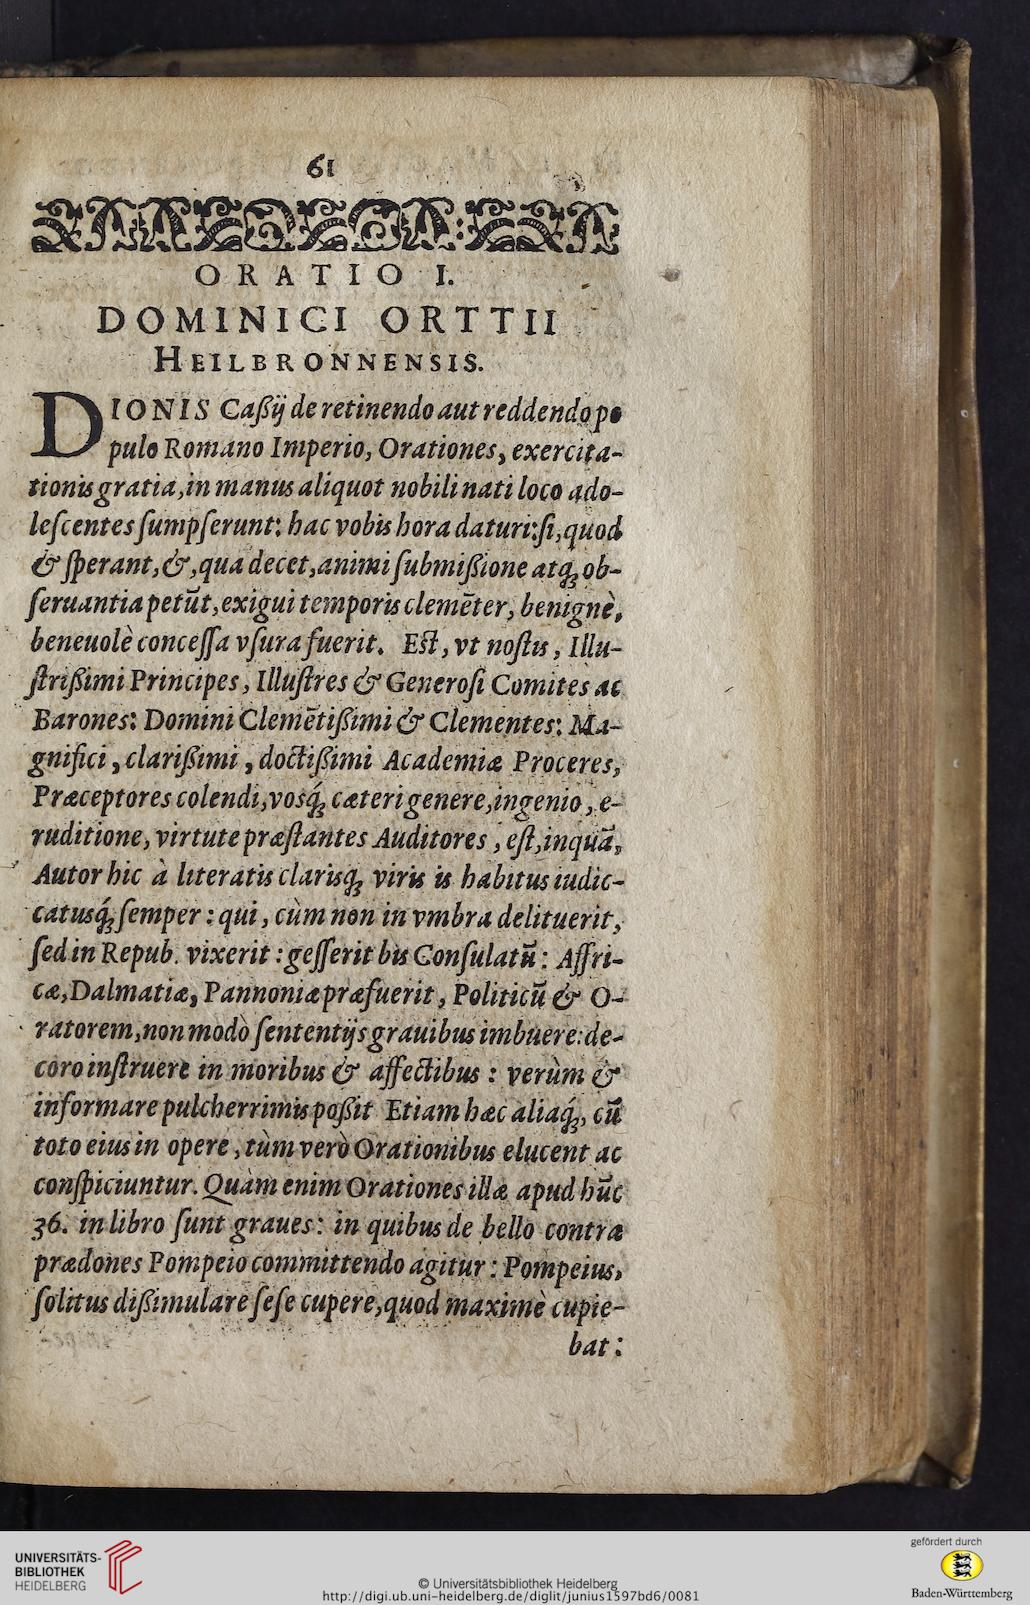 61
ORATIO I.
DOMINICI ORTTII
HEILBRONNENSIS.
DIONIS Caßij de retinendo aut reddendo po
pulo Romano Imperio, Orationes, exercita-
tionis gratia, in manus aliquot nobili nati loco ado-
leſcentes ſumpſerunt: hac vobis hora daturi: ſi, quod
& ſperant, &, qua decet, animi ſubmißione atq́; ob-
ſeruantia petūt, exigui temporis clemēter, benignè,
beneuolè conceſſa vſura fuerit. Eſt, vt noſtis, Illu-
ſtrißimi Principes, Illuſtres & Generoſi Comites ac
Barones: Domini Clemētißimi & Clementes: Ma-
gnifici, clarißimi, doctißimi Academiæ Proceres,
Præceptores colendi, vosq́; cæteri genere, ingenio, e-
ruditione, virtute præſtantes Auditores, eſt, inquā,
Autor hic à literatis clarisq; viris is habitus iudic-
catusq́; ſemper: qui, cùm non in vmbra delituerit,
ſed in Repub. vixerit: geſſerit bis Conſulatū: Affri-
cæ, Dalmatiæ, Pannoniæ præfuerit, Politicū & O-
ratorem, non modò ſententijs grauibus imbuere: de-
coro inſtruere in moribus & affectibus: verùm &
informare pulcherrimis poßit Etiam hæc aliaq́;, cū
toto eius in opere, tùm verò Orationibus elucent ac
conſpiciuntur. Quàm enim Orationes illæ apud hūc
36. in libro ſunt graues: in quibus de bello contra
prædones Pompeio committendo agitur: Pompeius,
ſolitus dißimulare ſeſe cupere, quod maximè cupie-
bat:
UNIVERSITÄTS-
BIBLIOTHEK
HEIDELBERG
© Universitätsbibliothek Heidelberg
http://digi.ub.uni-heidelberg.de/diglit/junius1597bd6/0081
gefördert durch
Baden-Württemberg